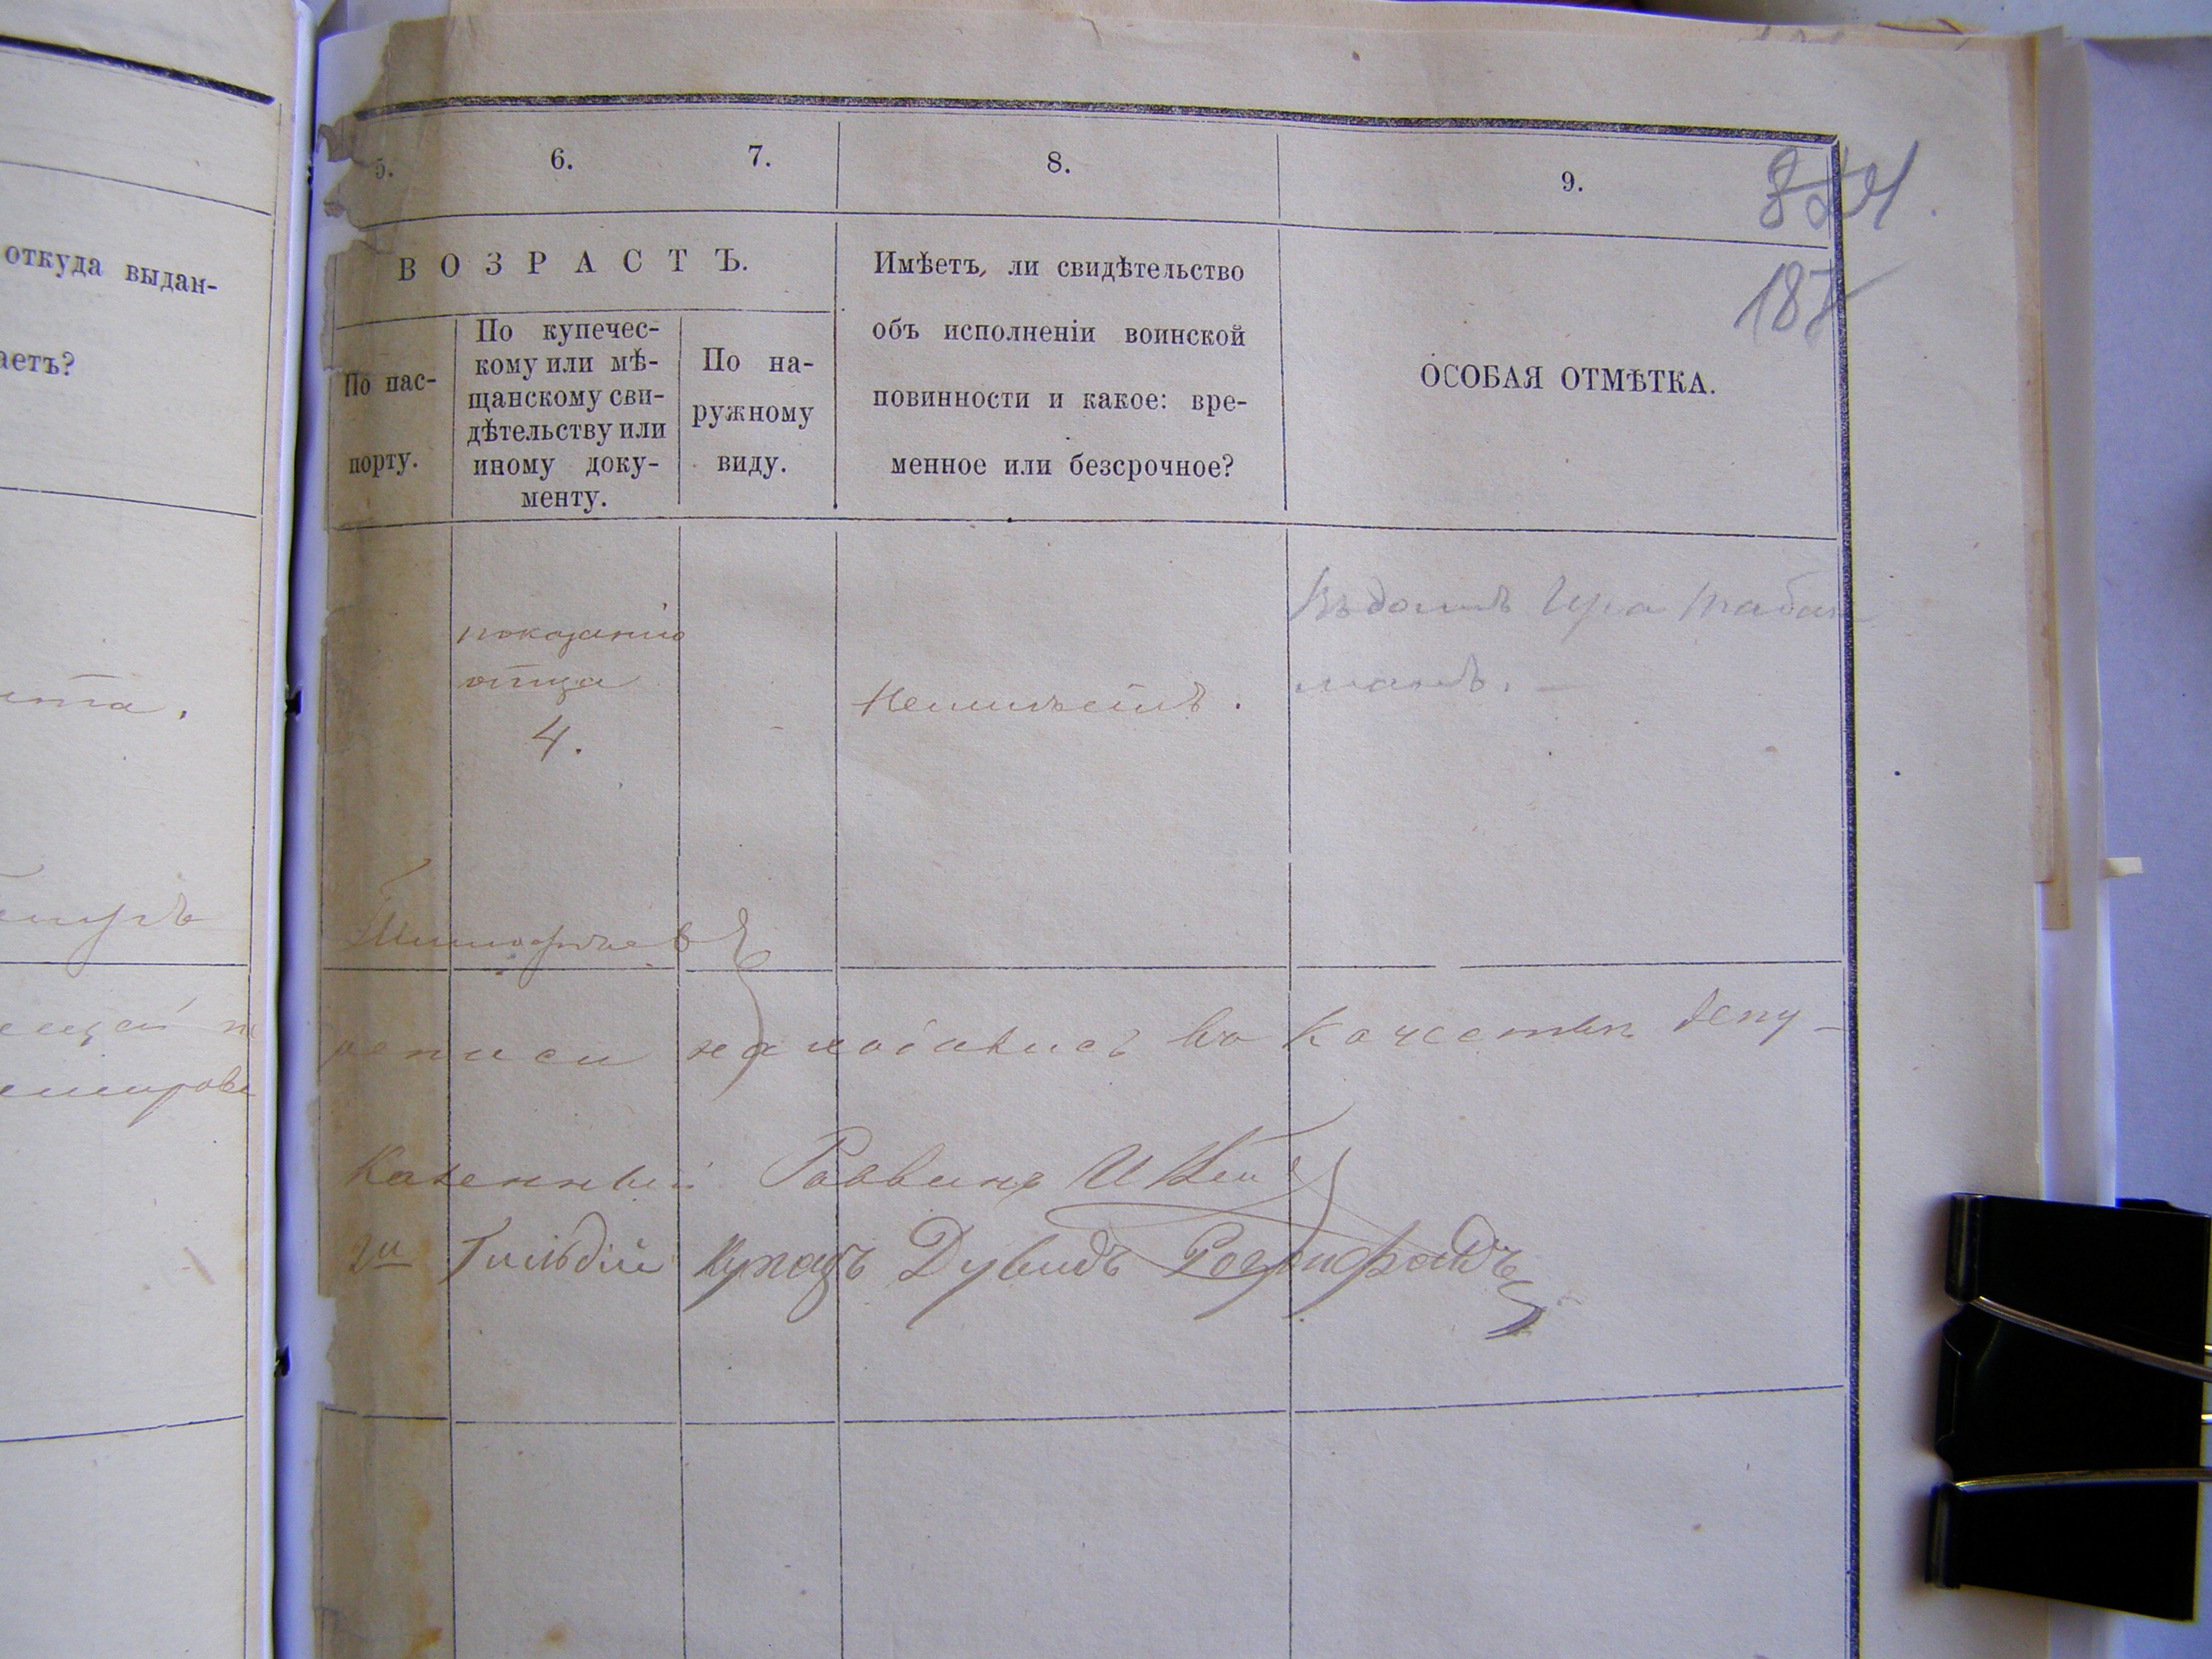 откуда выдан-
аетъ?
5.
6.
7.
8.
9.
187
ВОЗРАСТЪ.
По пас-
порту.
По купечес-
кому или мѣ-
щанскому сви-
дѣтельству или
иному доку-
менту.
По на-
ружному
виду.
Имѣетъ, ли свидѣтельство
объ исполненіи воинской
повинности и какое: вре-
менное или безсрочное?
ОСОБАЯ ОТМѢТКА.
показанію
отца
4.
Неимѣетъ.
Въ домѣ
Тимофѣевъ
находились въ качествѣ депу-
Казенный Раввинъ И
2й Гильдіи Купецъ Дувидъ